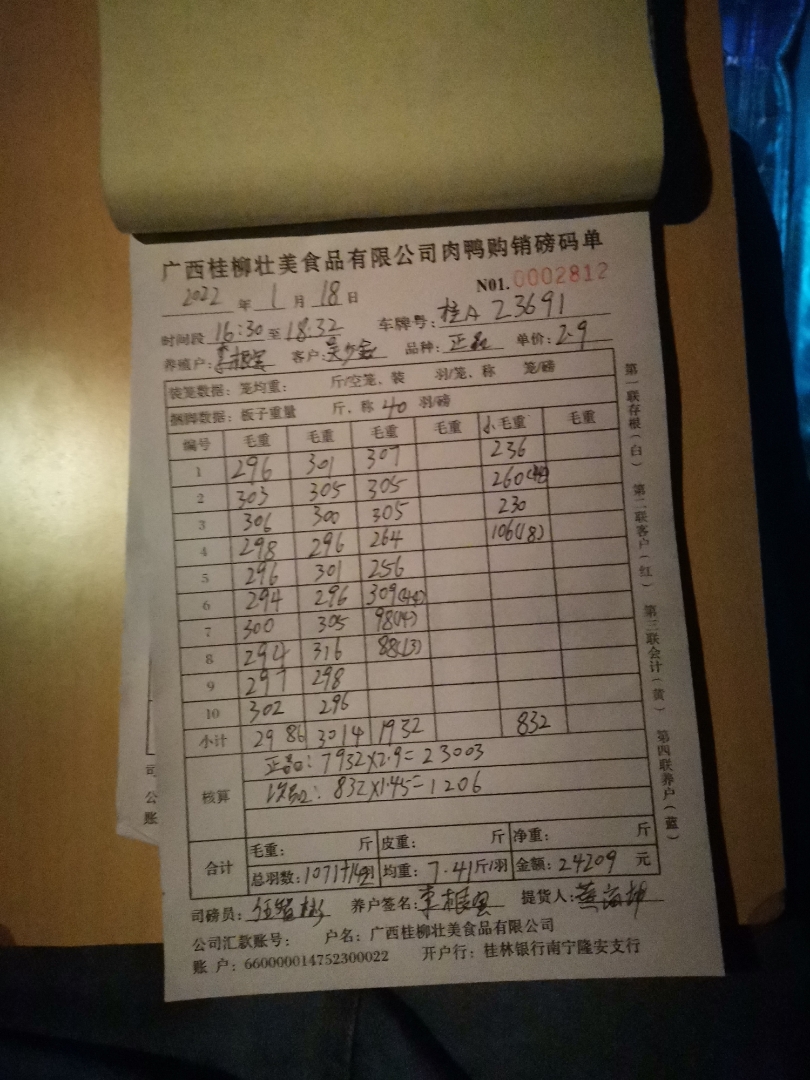 广西桂柳壮美食品有限公司肉鸭购销磅码单
2022 年 1 月 18 日 N01. 0002812
时间段 16:30 至 18:32 车牌号: 桂A 23691
养殖户: 李根 客户: 品种: 正品 单价: 2.9
装笼数据: 笼均重: 斤/空笼、装 羽/笼、称 笼/磅
捆脚数据: 板子重量 斤、称 40 羽/磅
编号 毛重 毛重 毛重 毛重 小毛重 毛重
1 296 301 307 236
2 303 305 305 260
3 306 300 305 230
4 298 296 264 106(18)
5 296 301 256
6 294 296 309(44)
7 300 305 98(14)
8 294 316 88(13)
9 297 298
10 302 296
小计 2986 3014 1932 832
核算 正品: 7932×2.9=23003
次品: 832×1.45=1206
合计 毛重: 斤 皮重: 斤 净重: 斤
总羽数: 1071+ 均重: 7.41斤/羽 金额: 24209 元
司磅员: 养户签名: 李根 提货人:
公司汇款账号: 户名: 广西桂柳壮美食品有限公司
账 户: 660000014752300022 开户行: 桂林银行南宁隆安支行
第一联存根(白) 第二联客户(红) 第三联会计(黄) 第四联养户(蓝)
司
公
账